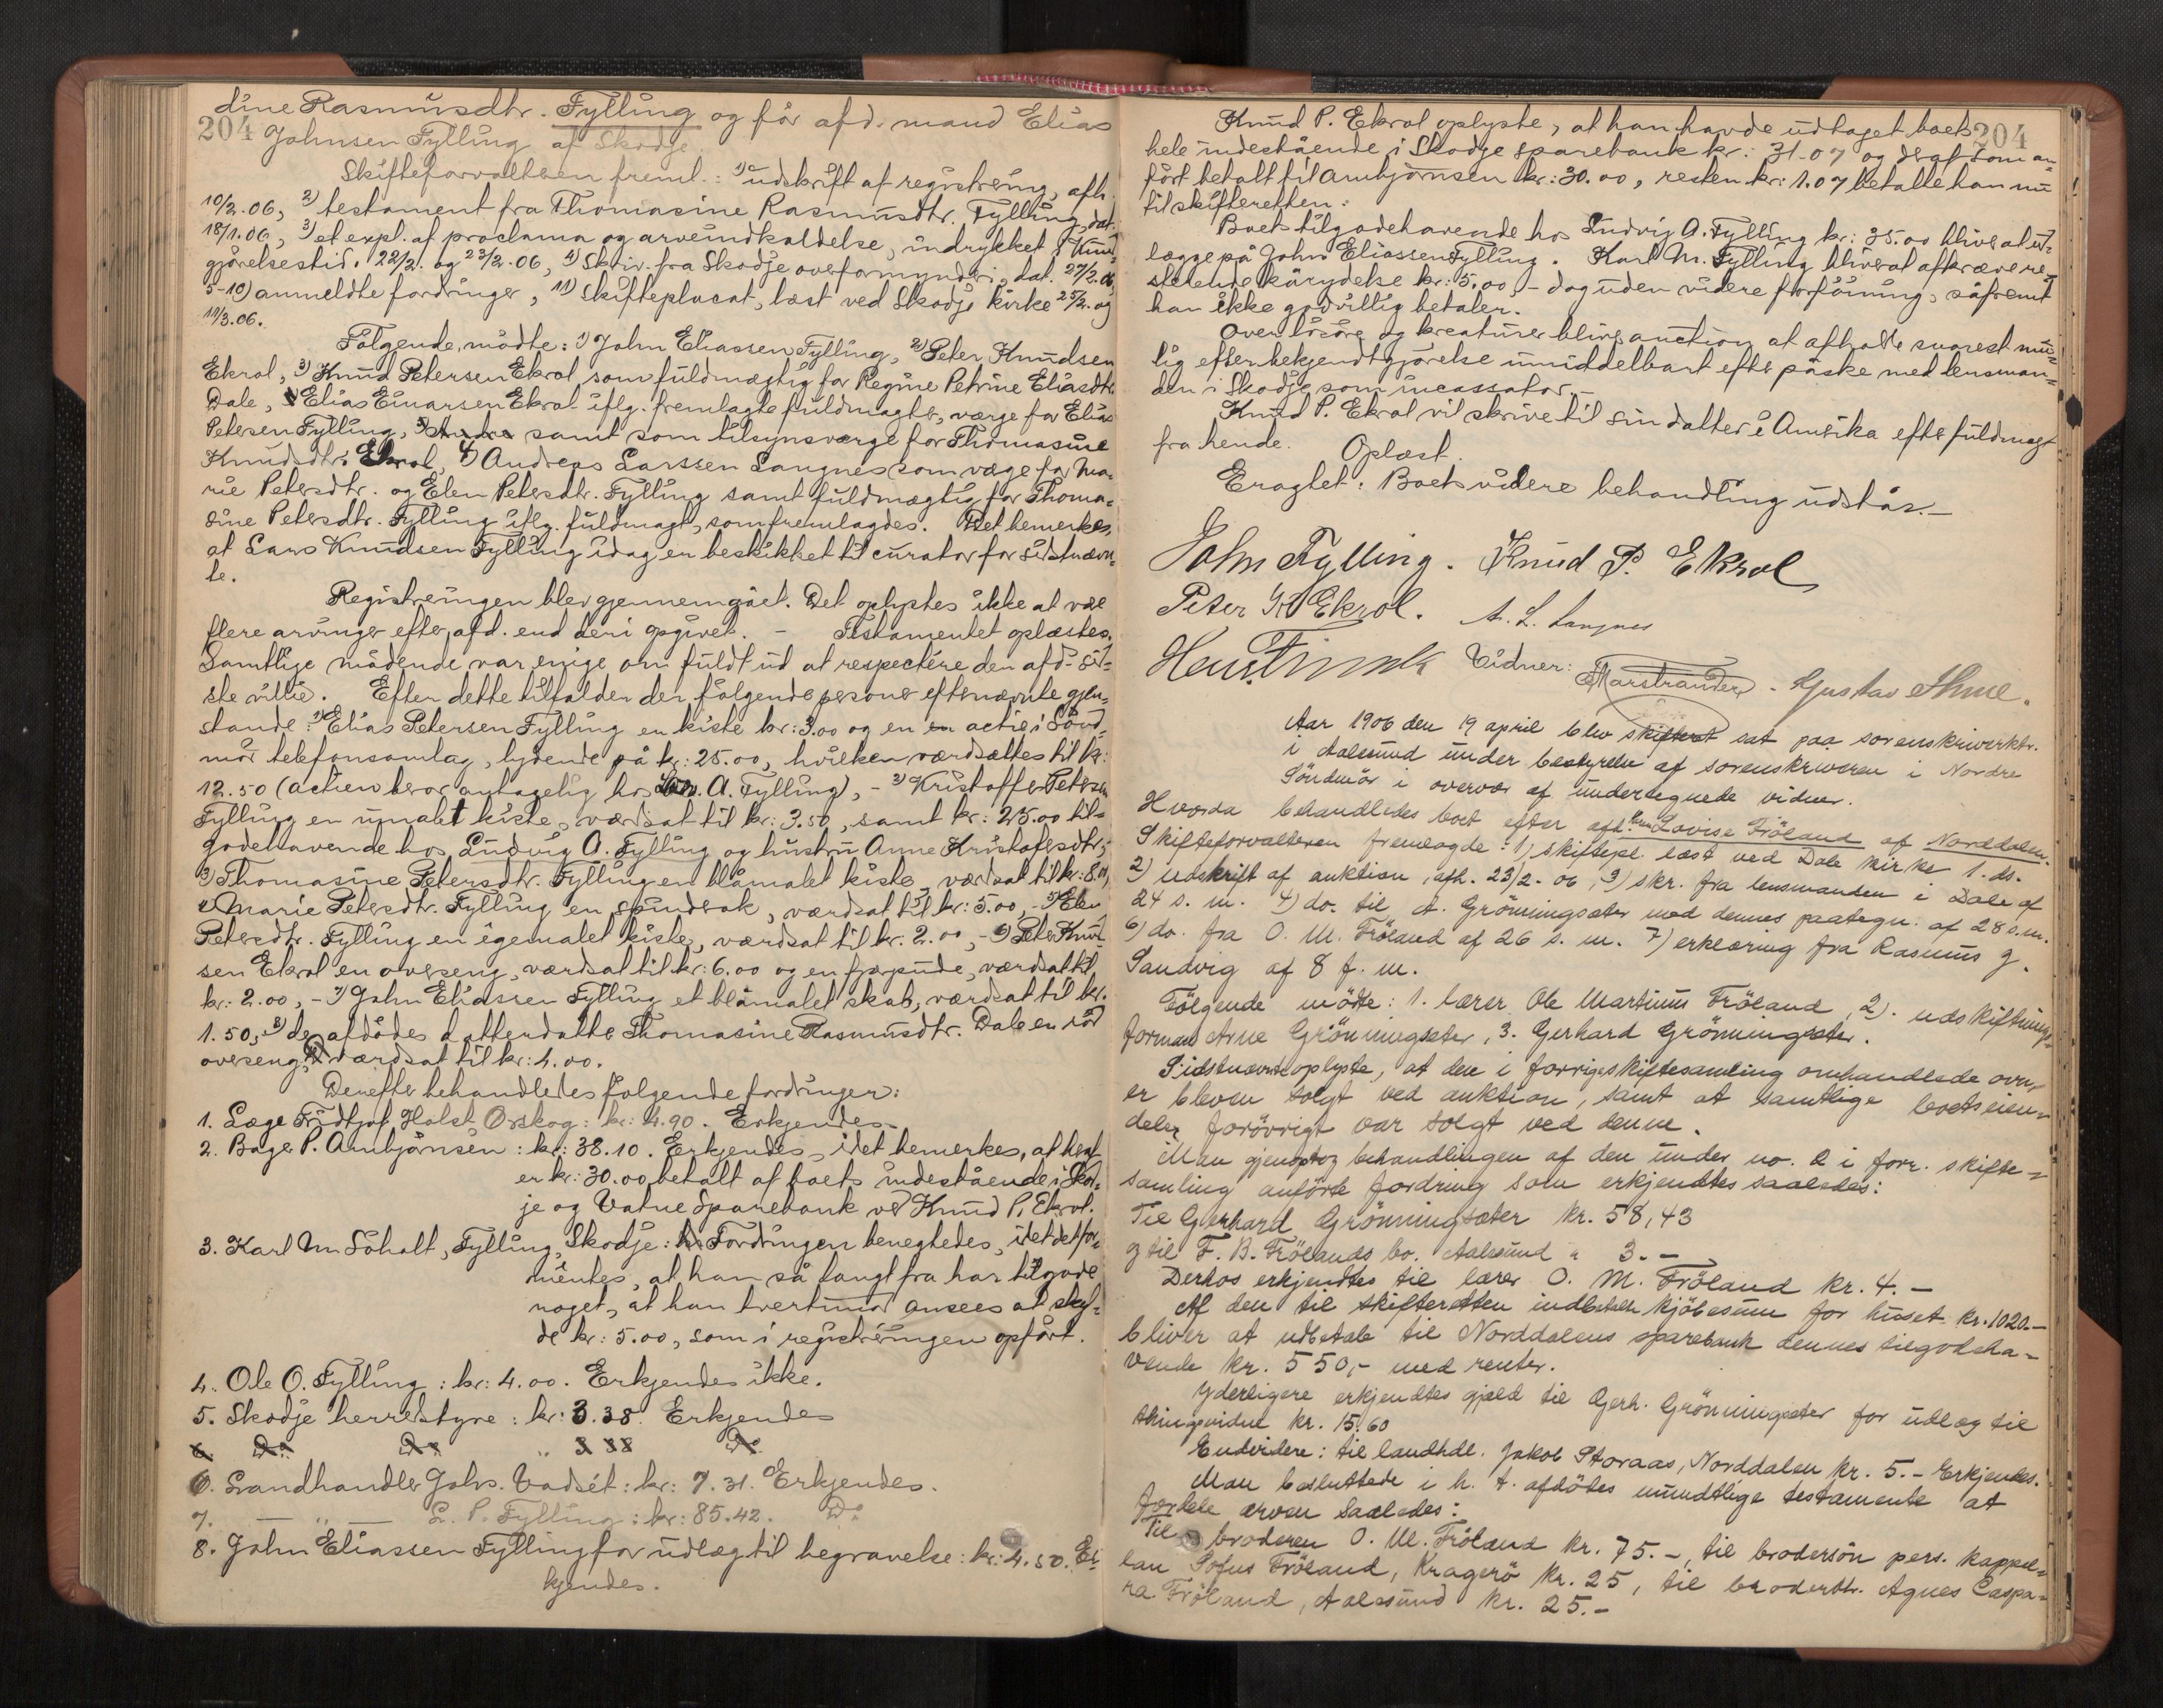 dine Rasmusdtr. Fylling og för afd. mand Elias
204 Johnsen Fylling af Skodje.
Skifteforvalteren freml.: 1) udskrift af registrering, afh.
10/2.06, 2) testament fra Thomasine Rasmusdtr. Fylling, dat.
18/1.06, 3) et expl. af proclama og arveindkaldelse, indrykket i Kund-
gjörelsestid. 22/2. og 23/2.06, 4) Skriv. fra Skodje overformynderi, dat. 27/2.06,
5-10) anmeldte fordringer, 11) Skifteplacat, læst ved Skodje kirke 25/2. og
11/3.06.
Følgende mödte: 1) John Eliassen Fylling, 2) Peter Knudsen
Ekrol, 3) Knud Petersen Ekrol, som fuldmægtig for Regine Petrine Eliasdtr.
Dale, Elias Einarsen Ekrol iflg. fremlagte fuldmagter, værge for Elias
Petersen Fylling, samt som tilsynsværge for Thomasine
Knudsdtr. Ekrol, 4) Andreas Larssen Langnes som værge for Ma-
rie Petersdtr. og Elen Petersdtr. Fylling samt fuldmægtig for Thoma-
sine Petersdtr. Fylling iflg. fuldmagt, som fremlagdes. Det bemerkes,
at Lars Knudsen Fylling idag er beskikket til curator for sidstnævn-
te.
Registreringen blev gjennemgået. Det oplystes ikke at være
flere arvinger efter afd. end deri opgivet. - Testamentet oplæstes.
Samtlige mödende var enige om fuldt ud at respectére den afd.s sid-
ste villie. Efter dette tilfalder der følgende personer efternævnte gjen-
stande: 1) Elias Petersen Fylling en kiste kr: 3.00 og en actie i Sönd-
mör telefonsamlag, lydende på kr: 25.00, hvilken værdsættes til kr:
12.50 (actien beror antagelig hos A. Fylling), - 2) Kristoffer Petersen
Fylling en umalet kiste, værdsat til kr: 3.50, samt kr: 25.00 til-
godehavende hos Ludvig A. Fylling og hustru Anne Kristofersdtr.,
3) Thomasine Petersdtr. Fylling en blåmalet kiste, værdsat til kr: 8.00,
4) Marie Petersdtr. Fylling en spinderok, værdsat til kr: 5.00, - 5) Elen
Petersdtr. Fylling en egemalet kiste, værdsat til kr. 2.00, - 6) Peter Knud-
sen Ekrol en overseng, værdsat til kr: 6.00 og en fjærpude, værdsat til
kr: 2.00, - 7) John Eliassen Fylling et blåmalet skab, værdsat til kr.
1.50, 8) den afdødes datterdatter Thomasine Rasmusdtr. Dale en röd
overseng, værdsat til kr: 4.00.
Derefter behandledes følgende fordringer:
1. Læge Fridtjof Holst, Orskog: kr: 4.90. Erkjendes.
2. Bager P. Arnbjörnsen: kr: 38.10. Erkjendes, idet bemerkes, at heraf
er kr: 30.00 betalt af boets indestående i Skod-
je og Vatne Sparebank ved Knud P. Ekrol.
3. Karl M. Soholt, Fylling, Skodje: Fordringen benegtedes, idet det for-
mentes, at han så langt fra har tilgode
noget, at han tvertimod ansees at skyl-
de kr: 5.00, som i registreringen opfört.
4. Ole O. Fylling: kr: 4.00. Erkjendes ikke.
5. Skodje herredstyre: kr: 3.38. Erkjendes
6. Do. Do. " 3 38 Do.
6. Landhandler Johs. Vadsét: kr: 7.31. Erkjendes.
7. — " — L. P. Fylling: kr: 85.42. Do.
8. John Eliassen Fylling for udlæg til begravelse: kr: 4.50. Er-
kjendes.
204
Knud P. Ekrol oplyste, at han havde udtaget boets
hele indestående i Skodje sparebank kr: 31.07 og deraf som an-
fört betalt til Arnbjörnsen kr: 30.00, resten kr: 1.07 betalte han nu
til skifteretten.
Boets tilgodehavende hos Ludvig A. Fylling kr: 35.00 bliver at ud-
lægge på John Eliassen Fylling. Karl M. Fylling bliver at afkræve re-
sterende kårydelse kr: 5.00, - dog uden videre forföining, såfremt
han ikke godvillig betaler.
Over lösöre og kreaturer bliver auction at afholde snarest mu-
lig efter bekjendtgjörelse umiddelbart efter påske med lensman-
den i Skodje som incassator. -
Knud P. Ekrol vil skrive til sin datter i Amerika efter fuldmagt
fra hende. Oplæst.
Eragtet: Boets videre behandling udstår. -
John Fylling. Knud P. Ekrol
Peter K Ekrol. A. L. Langnes
Vidner: Marstrander. Gustav Thue.
Aar 1906 den 19 april blev skifteret sat paa sorenskriverktr.
i Aalesund under bestyrelse af sorenskriveren i Nordre
Söndmör i overvær af undertegnede vidner.
Hvorda behandledes boet efter afd. Lovise Fröland af Norddalen.
Skifteforvalteren fremlagde: 1) skiftepl. læst ved Dale kirke 1. ds.
2) udskrift af auktion, afh. 23/2-06, 3) skr. fra lensmanden i Dale af
24 s. m. 4) do. til A. Grönningsæter med dennes paategn. af 28 s. m.
6) do. fra O. M. Fröland af 26 s. m. 7) erklæring fra Rasmus J.
Sandvig af 8 f. m.
Fölgende mötte: 1. lærer Ole Martinus Fröland, 2). udskiftnings-
formand Arne Grönningsæter, 3. Gerhard Grönningsæter.
Sidstnævnte oplyste, at den i forrige skiftesamling omhandlede ovn
er bleven solgt ved auktion, samt at samtlige boets eien-
dele forövrigt var solgt ved denne.
Man gjenoptog behandlingen af den under no. 2 i forr. skifte-
samling anförte fordring som erkjendtes saaledes:
Til Gerhard Grönningsæter kr. 58,43
og til F. B. Frölands bo, Aalesund " 3.-
Derhos erkjendtes til lærer O. M. Fröland kr. 4.-
Af den til skifteretten indbetalte kjöbesum for huset kr. 1020.-
bliver at udbetale til Norddalens sparebank dennes tilgodeha-
vende kr. 550,- med renter.
Yderligere erkjendtes gjæld til Gerh. Grönningsæter for udlæg til
thingsvidne kr. 15.60
Endvidere: til landhdl. Jakob Storaas, Norddalen kr. 5.- Erkjendes.
Man besluttede i h. t. afdödes mundtlige testamente at
fordele arven saaledes:
Til broderen O. M. Fröland kr. 75.-, til brodersön pers. kappel-
lan Sofus Fröland, Kragerö kr. 25, til broderdtr. Agnes Caspa-
ra Fröland, Aalesund kr. 25.-